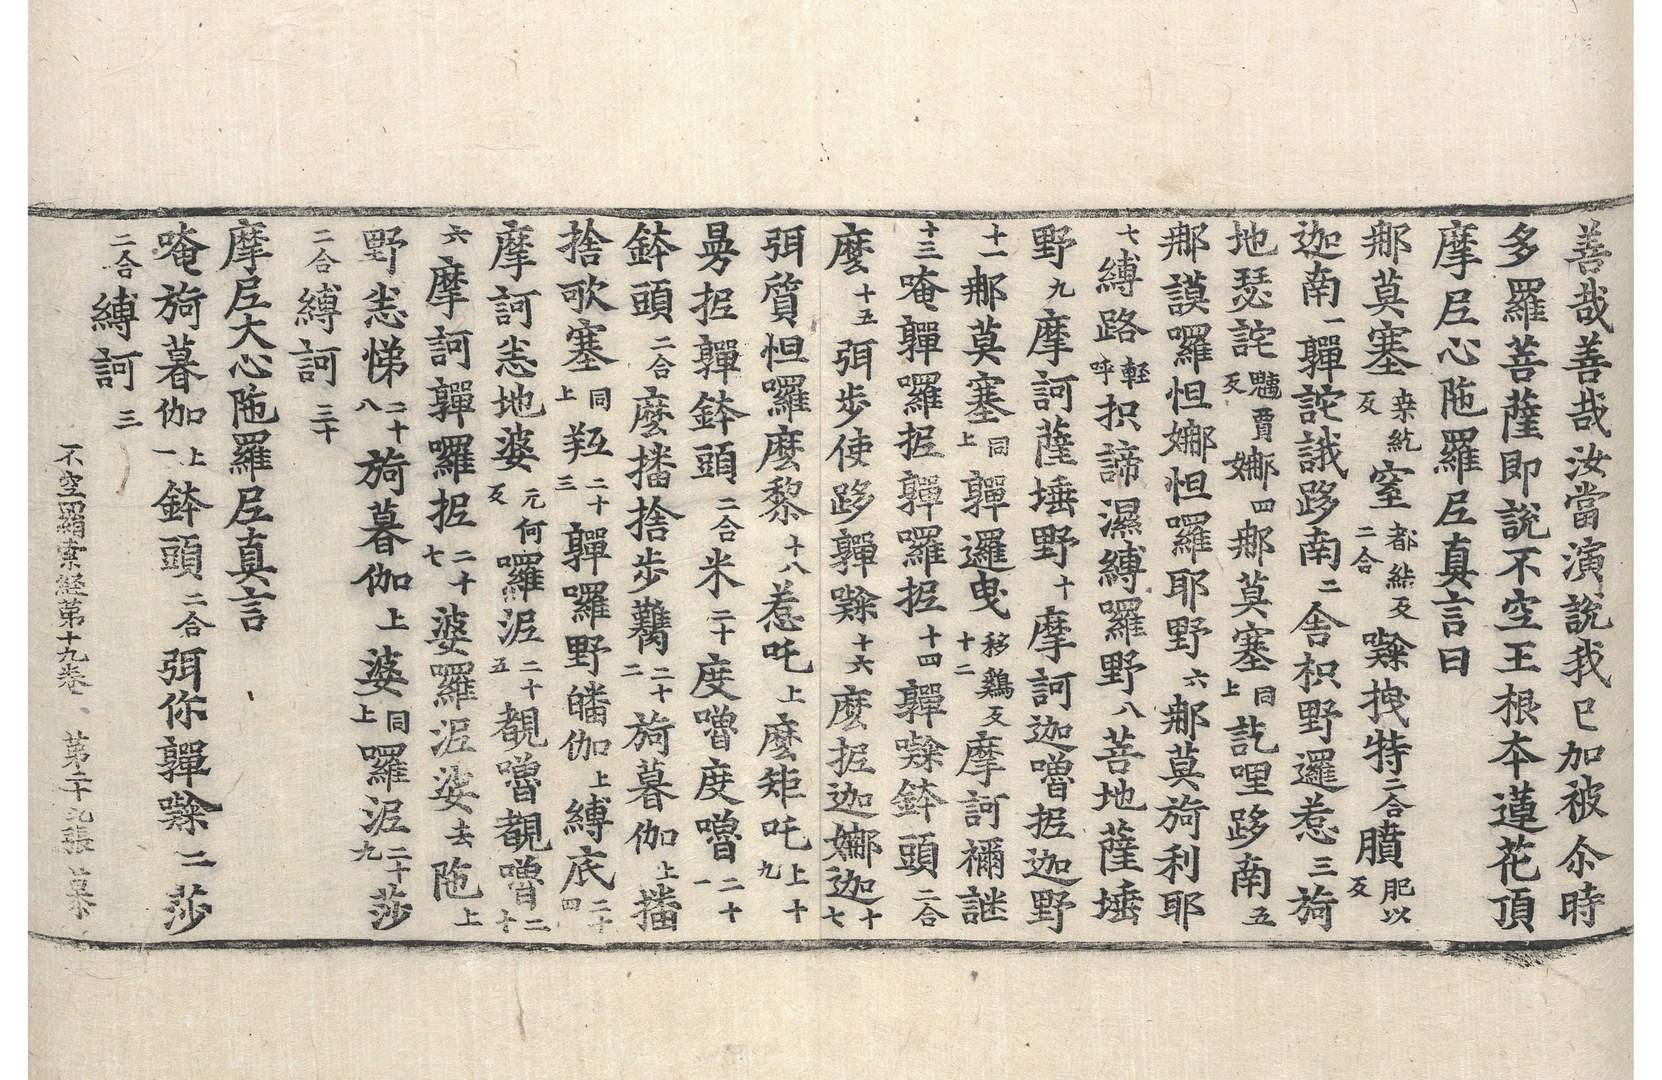 善哉善哉汝當演說我已加被尒時
多羅菩薩即說不空王根本蓮花頂
摩尼心陁羅尼真言曰
那莫塞桒紇反窒都結反二合㘑拽特二合膹肥以反
迦南一㗚詫誐跢南二舍枳野邏惹三旖
地瑟詫魑賈反娜四那莫塞同上訖哩跢南五
那謨囉怛娜怛囉耶野六那莫旖利耶
七縛路輕呼枳諦濕縛羅野八菩地薩埵
野九摩訶薩埵野十摩訶迦嚕抳迦野
十一那莫塞同上㗚邏曳移雞反十二摩訶禰謎
十三唵㗚囉抳㗚囉抳十四㗚㘑鉢頭二合
麼十五弭步使跢㗚㘑十六麼抳迦娜迦十七
弭質怛囉麼黎十八惹吒上麼矩吒上十九
曼抳㗚鉢頭二合米二十度嚕度嚕二十一
鉢頭二合麼播捨步鷜二十二旖暮伽上播
捨歌塞同上羝二十三㗚囉野皤伽上縛底二十四
摩訶恙地婆元何反囉泥二十五覩嚕覩嚕二十
六摩訶㗚囉抳二十七婆羅泥娑去陁上
野恙悌二十八旖暮伽上婆同上囉泥二十九莎
二合縛訶三十
摩尼大心陁羅尼真言
唵旖暮伽上一鉢頭二合弭你㗚㘑二莎
二合縛訶三
不空羂索經第十九卷 第二十九張 慕